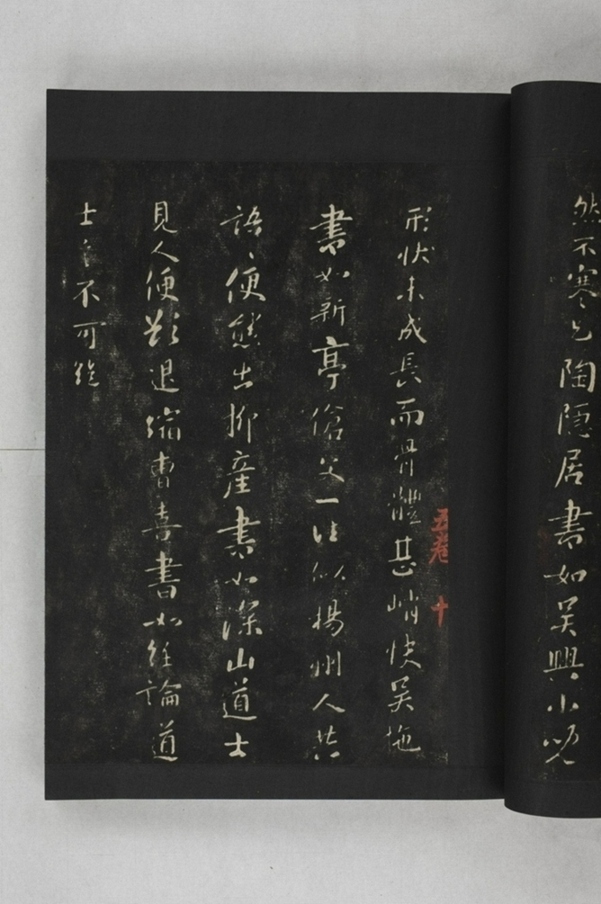 然不寒乞陶隱居書如吳興小兒
五卷 十
形狀未成長而骨體甚峭快吳施
書如新亭傖父一往似揚州人共
語〻便態出柳產書如深山道士
見人便欲退縮曹喜書如經論道
士言不可絕